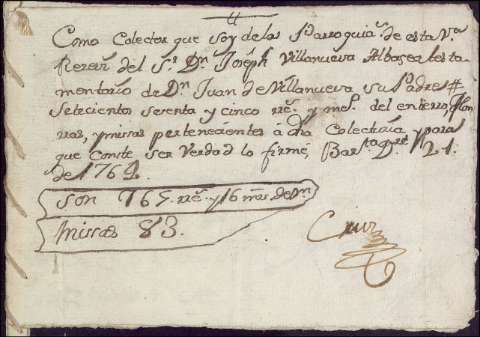 Como Colector que soy de las Parroquias. de esta Va.
Recevi del Sr. Dn. Joseph Villanueva Albasea testa
mentario de Dn. Juan de Villanueva su Padre #
Setecientos Sesenta y cinco rrs. y mo. del entierro, Hon
rras, y missas pertenecientes á dha Colecturia, y para
que Conste ser Verdad lo firmé, 21.
de 1762.
Son 765. rrs. y 16 mrs. de Vn.
Missas 83.
Cruz